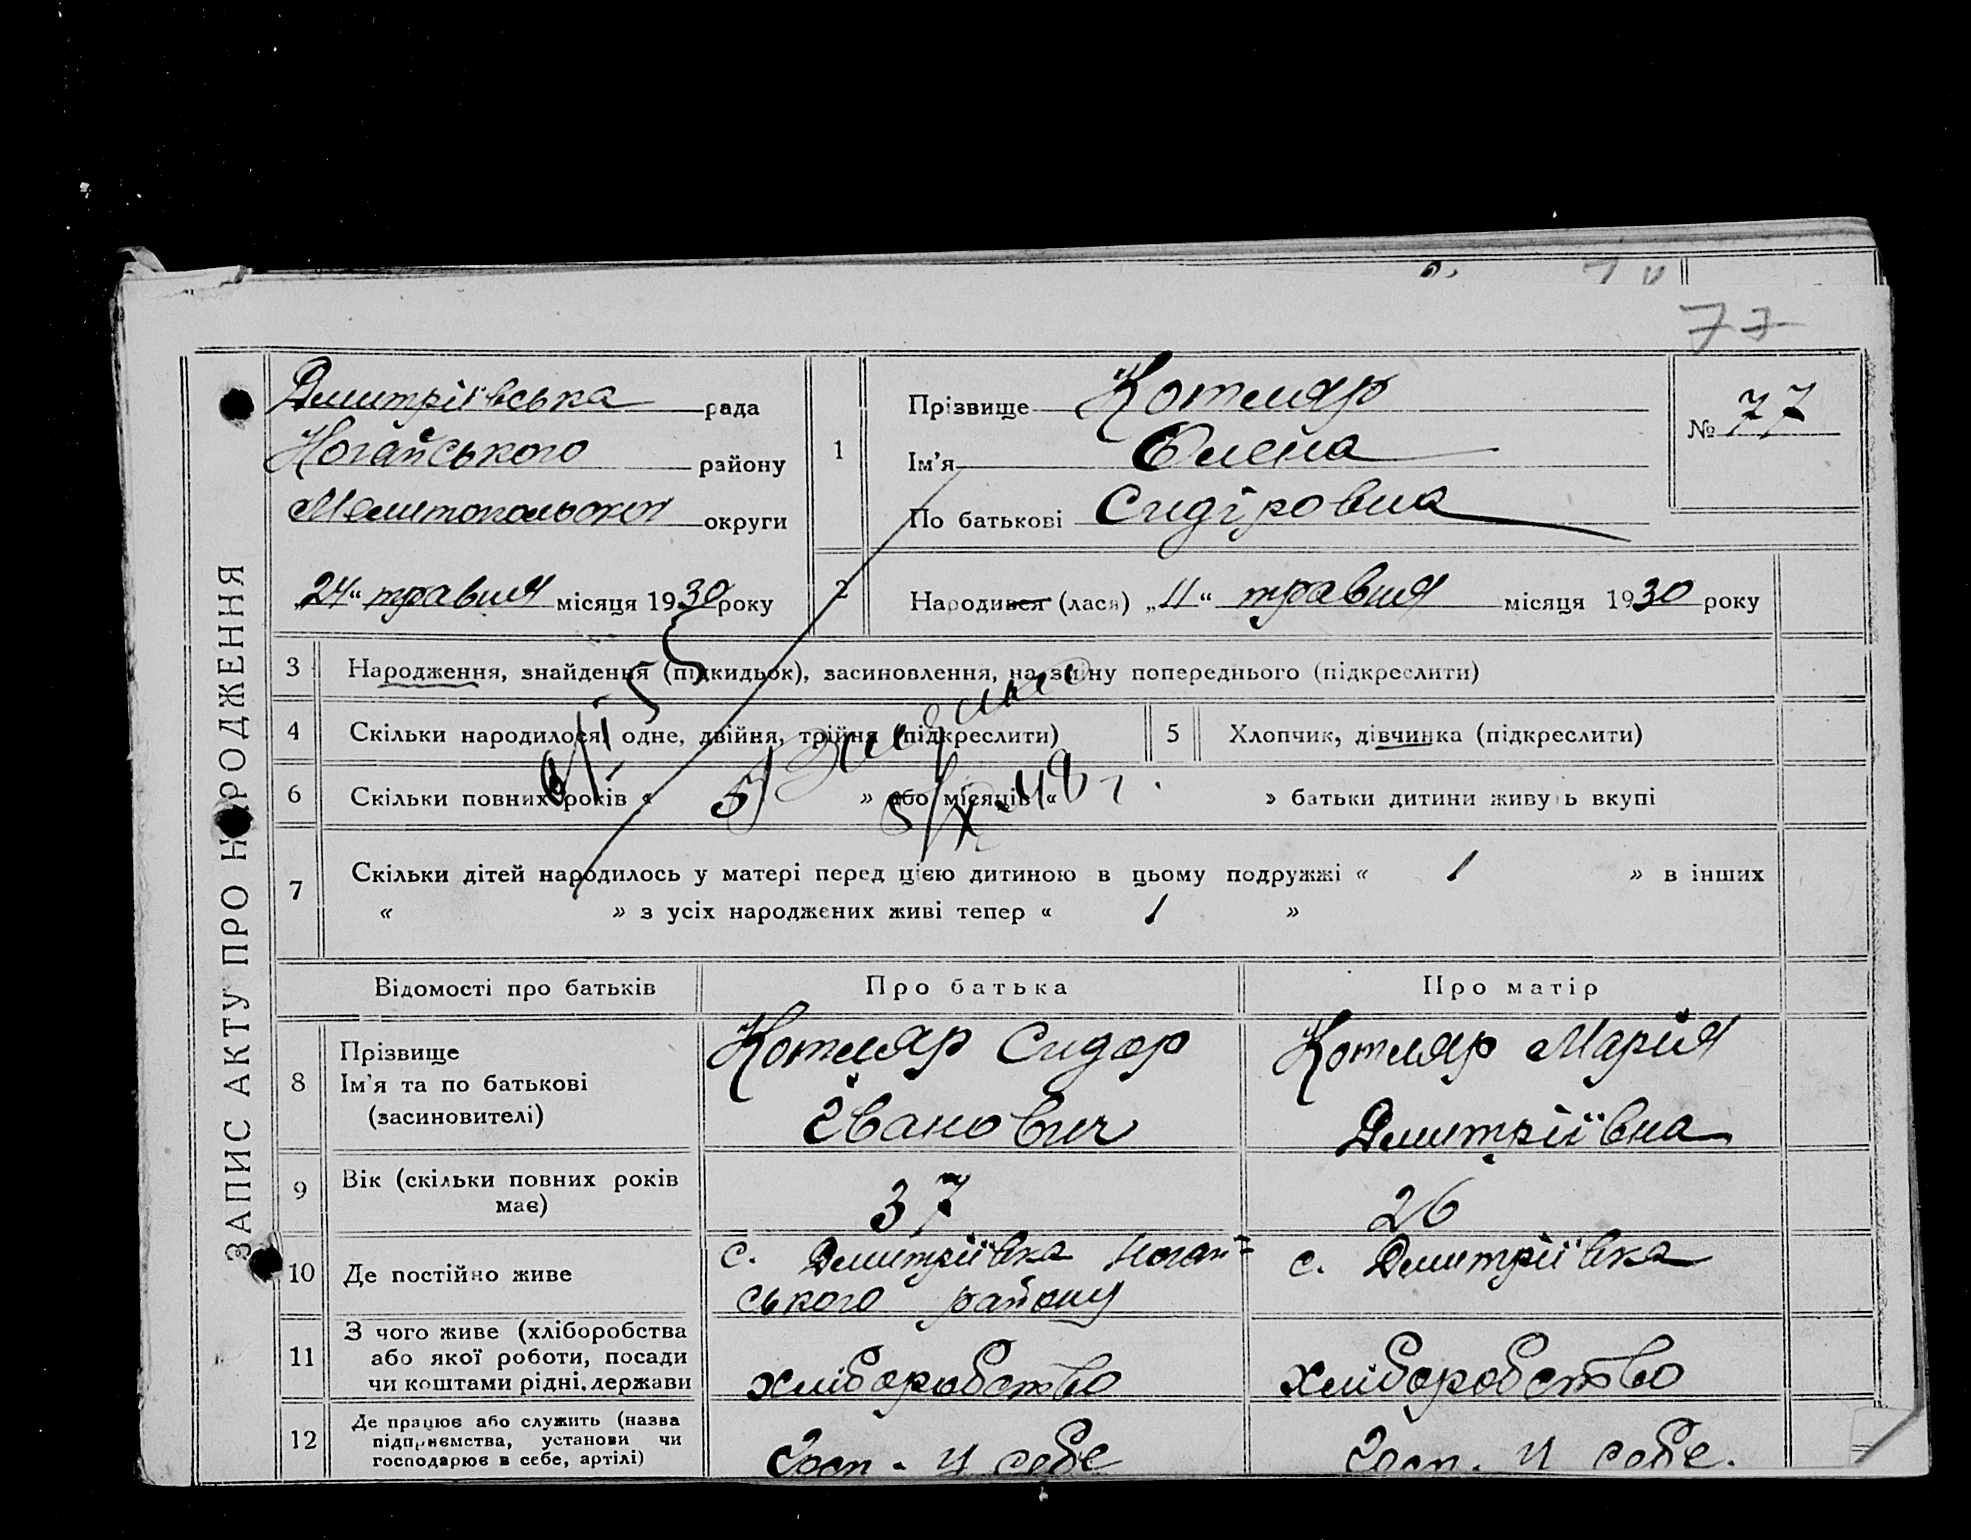 77
ЗАПИС АКТУ ПРО НАРОДЖЕННЯ
Дмитріївська рада
Ногайського району
Мелитопольскої округи
„24“ травня місяця 1930 року
1
Прізвище Котляр
Ім'я Олена
По батькові Сидіровна
№ 77
2
Народився (лася) „11“ травня місяця 1930 року
3 Народження, знайдення (підкидьок), засиновлення, на зміну попереднього (підкреслити)
4 Скільки народилося: одне, двійня, трійня (підкреслити)
5 Хлопчик, дівчинка (підкреслити)
6 Скільки повних років « 5 » або місяців « » батьки дитини живуть вкупі
7 Скільки дітей народилось у матері перед цією дитиною в цьому подружжі « 1 » в інших
« » з усіх народжених живі тепер « 1 »
Відомості про батьків
Про батька
Про матір
8 Прізвище
Ім'я та по батькові
(засиновителі)
Котляр Сидор
Іванович
Котляр Марія
Дмитріївна
9 Вік (скільки повних років
має)
37
26
10 Де постійно живе
с. Дмитріївка Ногай=
ського району
с. Дмитріївка
11 З чого живе (хліборобства
або якої роботи, посади
чи коштами рідні, держави
хліборобство
хліборобство
12 Де працює або служить (назва
підприємства, установи чи
господарює в себе, артілі)
Госп. у себе
Госп. у себе.